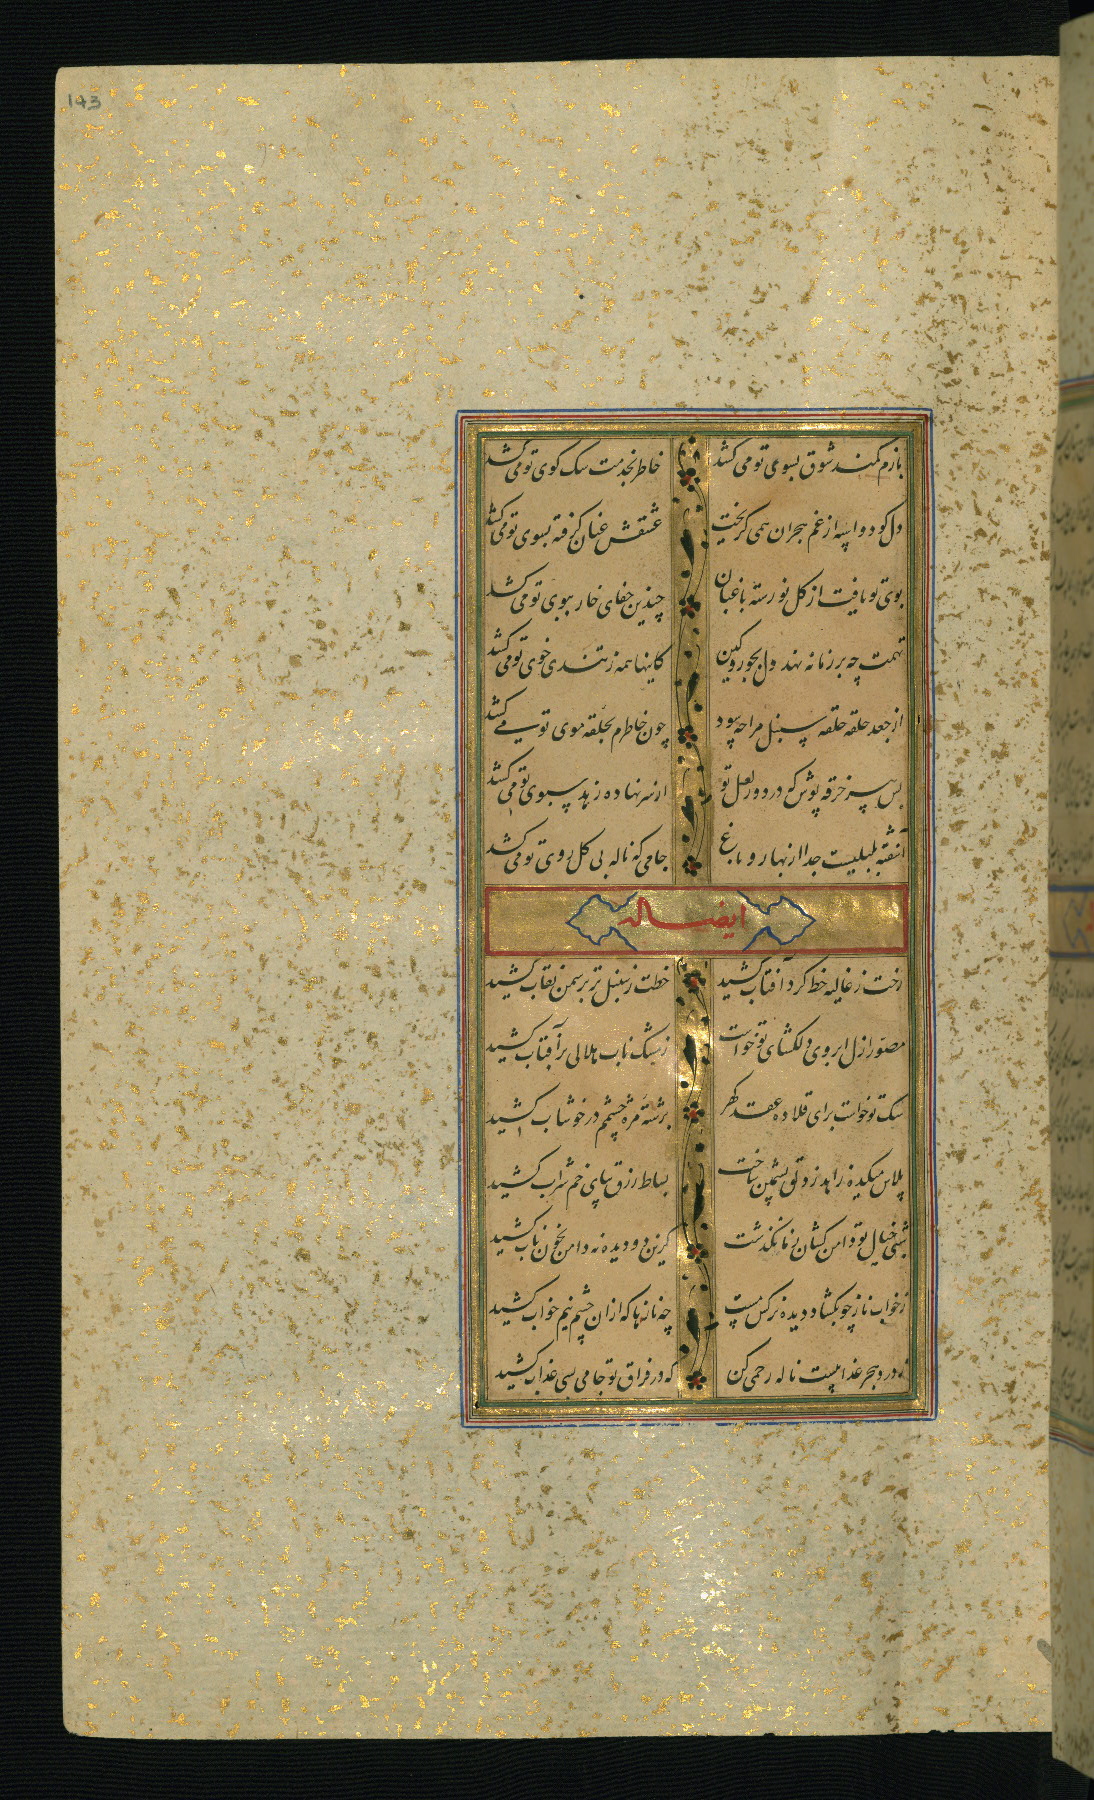 143
بازم کمند شوق بسوی تو می کشد خاطر بخدمت سک کوی تو می کشد
دل کو دو اسپه از غم هجران همی کریخت عشقش عنان کرفته بسوی تو می کشد
بوی تو یافت از کل نورسته باغبان چندین جفای خار ببوی تو می کشد
تهمت چه بر زمانه نهد دل بجور و کین کاینها همه ز تندی خوی تو می کشد
از جعد حلقه حلقه سنبل مرا چه سود چون خاطرم بحلقه موی تو می کشد
بس پیر خرقه پوش که در دور لعل تو از سر نهاده زهد سبوی تو می کشد
آشفته بلبلیست جدا از بهار و باغ جامی که ناله بی کل روی تو می کشد
ایضا له
رخت ز غالیه خط کرد آفتاب کشید خطت ز سنبل تر بر سمن نقاب کشید
مصور ازل ابروی دلکشای تو خواست ز مشک ناب هلالی بر آفتاب کشید
سکت تو خواست برای قلاده عقد کهر برشته مژه چشمم در خوشاب کشید
پلاس میکده زاهد ز دلق پشمین ساخت بساط رزق بپای خم شراب کشید
شبی خیال تو دامن کشان ز ما نکذشت کزین دو دیده نه دامن بخون ناب کشید
ز خواب ناز چو بکشاد دیده نرکس مست چه نازها که از ان چشم نیم خواب کشید
ز درد هجر عذابیست ناله رحمی کن که در فراق تو جامی بسی عذاب کشید